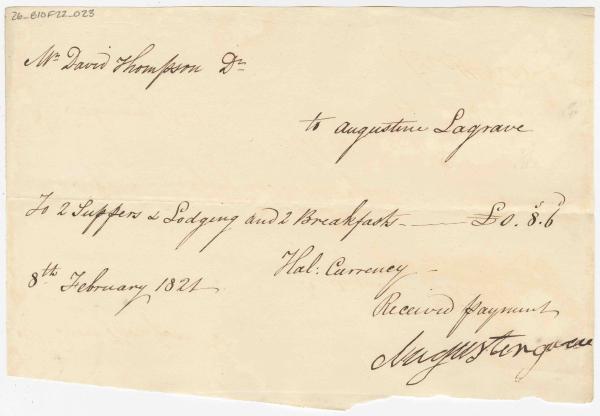 26_B10F22_023
Mr David Thompson Dr
to Augustine Lagrave
To 2 Suppers & Lodging and 2 Breakfasts — £0. 8s. 6d
Hal: Currency
8th February 1821
Received payment